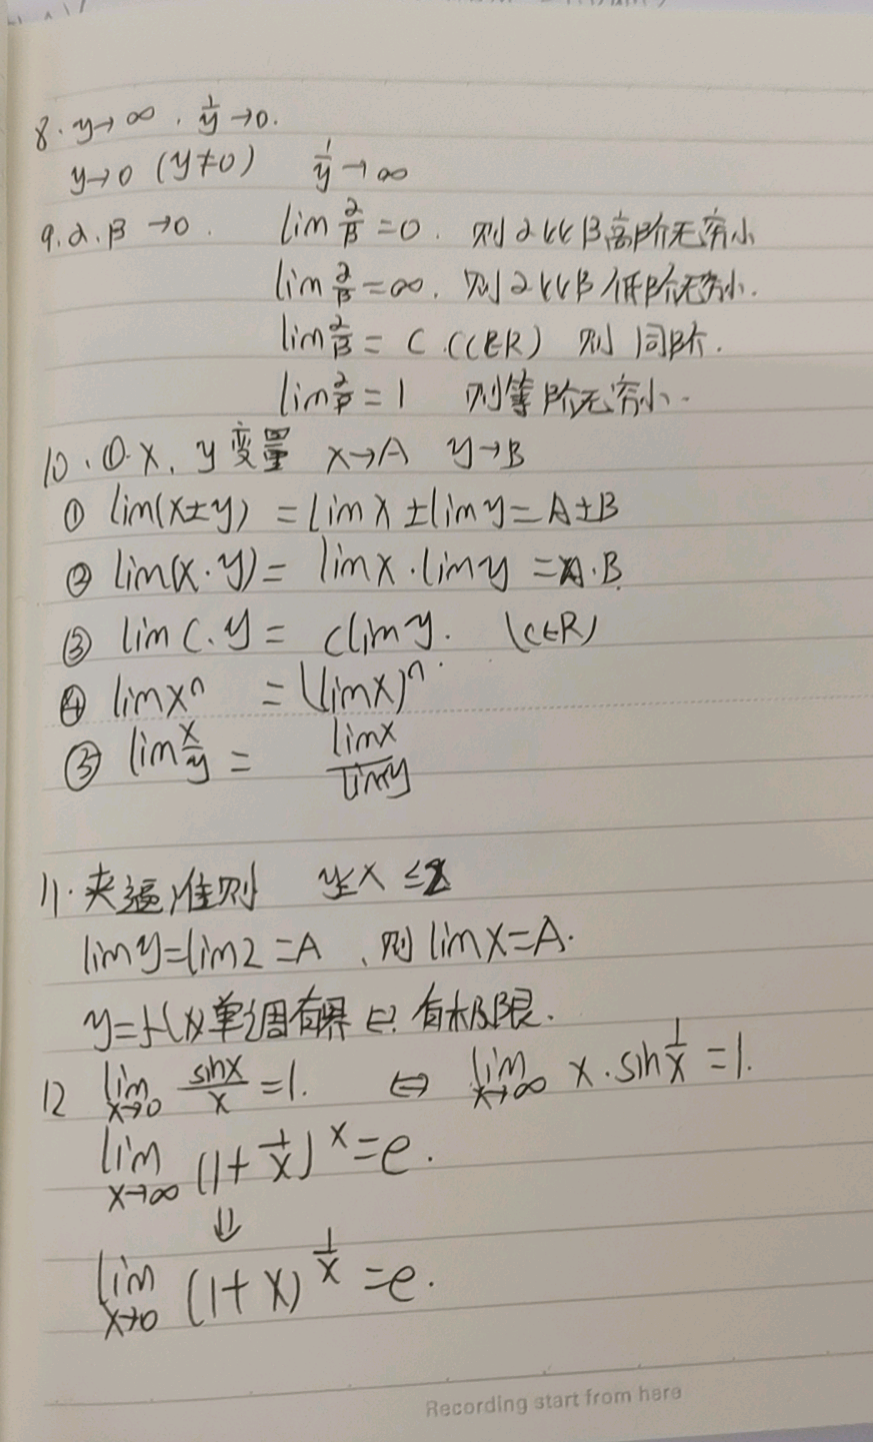 8. y→∞ . 1/y →0.
y→0 (y≠0) 1/y →∞
9. α. β →0. lim α/β =0. 则 α<<β 高阶无穷小
lim α/β =∞. 则 α<<β 低阶无穷小.
lim α/β = C (C∈R) 则 同阶.
lim α/β = 1 则等阶无穷小.
10. ①. x. y 变量 x→A y→B
① lim(x±y) = lim x ± lim y = A±B
② lim(x·y) = lim x · lim y = A·B
③ lim C.y = C lim y. (C∈R)
④ lim xⁿ = (lim x)ⁿ.
⑤ lim x/y = lim x / lim y
11. 夹逼准则 y≤x≤z
lim y = lim z = A 、则 lim x = A.
y=f(x) 单调有界 有极限.
12 lim x→0 sinx/x =1. ⇔ lim x→∞ x·sin 1/x =1.
lim x→∞ (1+1/x)^x = e.
⇓
lim x→0 (1+x)^(1/x) = e.
Recording start from here